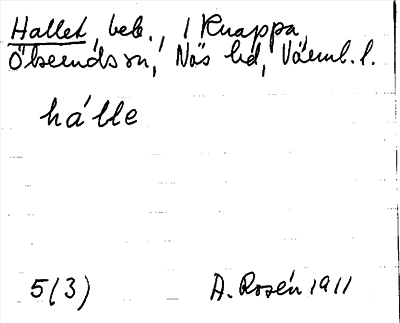 Hallet, beb., 1 Knappa,
Ölserudssn, Näs hd, Värml. l.
hálle
5(3) A. Rosén 1911